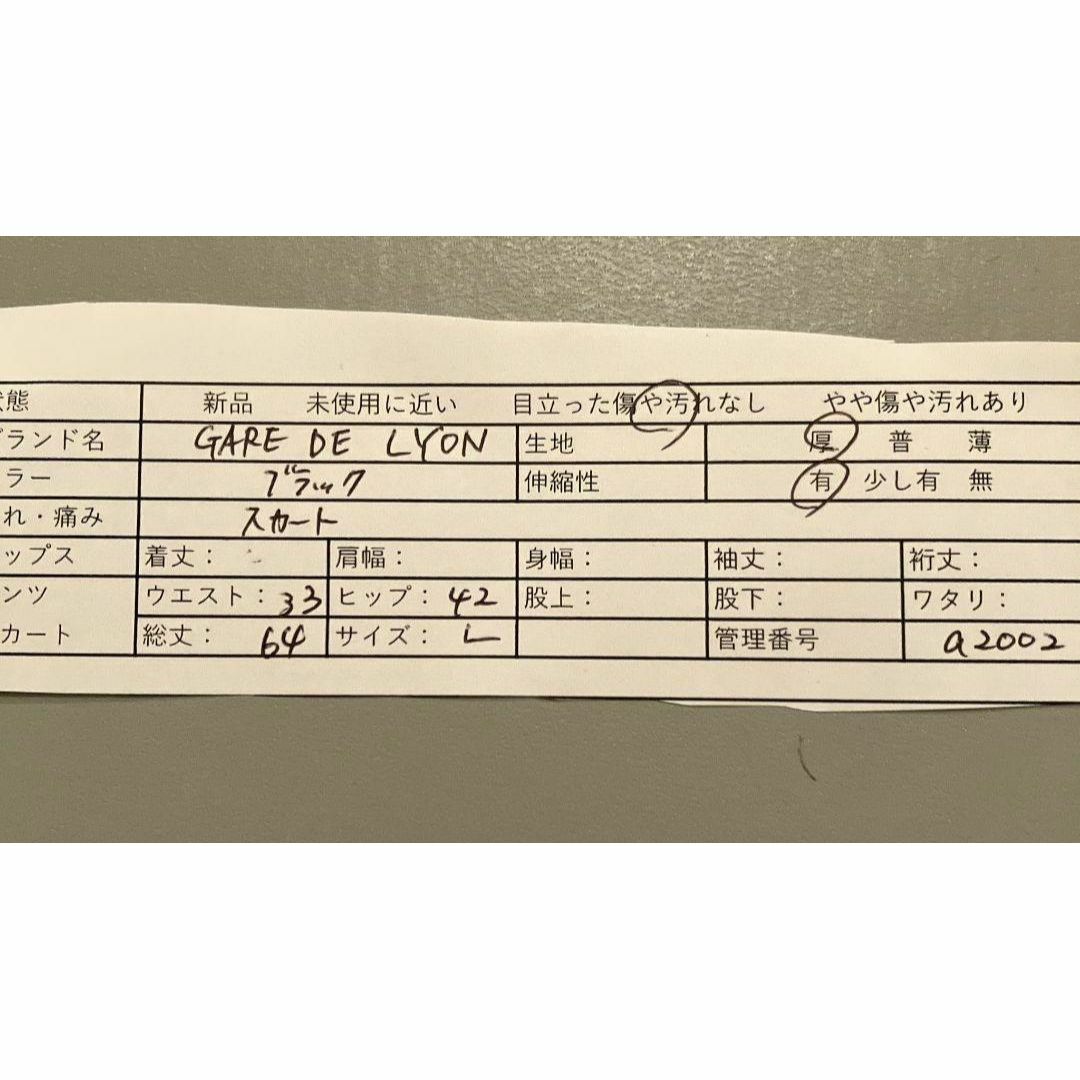 態 新品 未使用に近い 目立った傷や汚れなし やや傷や汚れあり
ランド名 GARE DE LYON 生地 厚 普 薄
ラー ブラック 伸縮性 有 少し有 無
れ・痛み スカート
ップス 着丈： 肩幅： 身幅： 袖丈： 裄丈：
ンツ ウエスト：33 ヒップ：42 股上： 股下： ワタリ：
カート 総丈：64 サイズ：L 管理番号 a2002